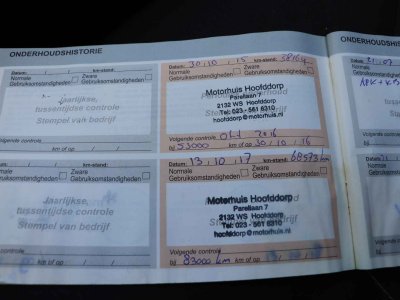 ONDERHOUDSHISTORIE
ONDERHOUDSHISTOR
Datum: / / km-stand:
Normale Gebruiksomstandigheden
Zware
Jaarlijkse,
tussentijdse controle
Stempel van bedrijf
Volgende controle
bij km of op / /
Datum: 30 / 10 / 15 km-stand:
Normale Gebruiksomstandigheden
Zware
Motorhuis Hoofddorp
Parellaan 7
2132 WS Hoofddorp
Tel: 023 - 561 8310
hoofddorp@motorhuis.nl
Volgende controle Okt 2016
bij km of op 30 / 10 / 16
Datum: / / km-stand:
Normale
Gebruiksomstandigheden
Zware
Jaarlijkse,
tussentijdse controle
Stempel van bedrijf
Volgende controle
km of op / /
Datum: 13 / 10 / 17 km-stand: 68573 km
Normale
Gebruiksomstandigheden
Zware
Motorhuis Hoofddorp
Parellaan 7
2132 WS Hoofddorp
Tel: 023 - 561 8310
hoofddorp@motorhuis.nl
Volgende controle
bij 83000 km km of op